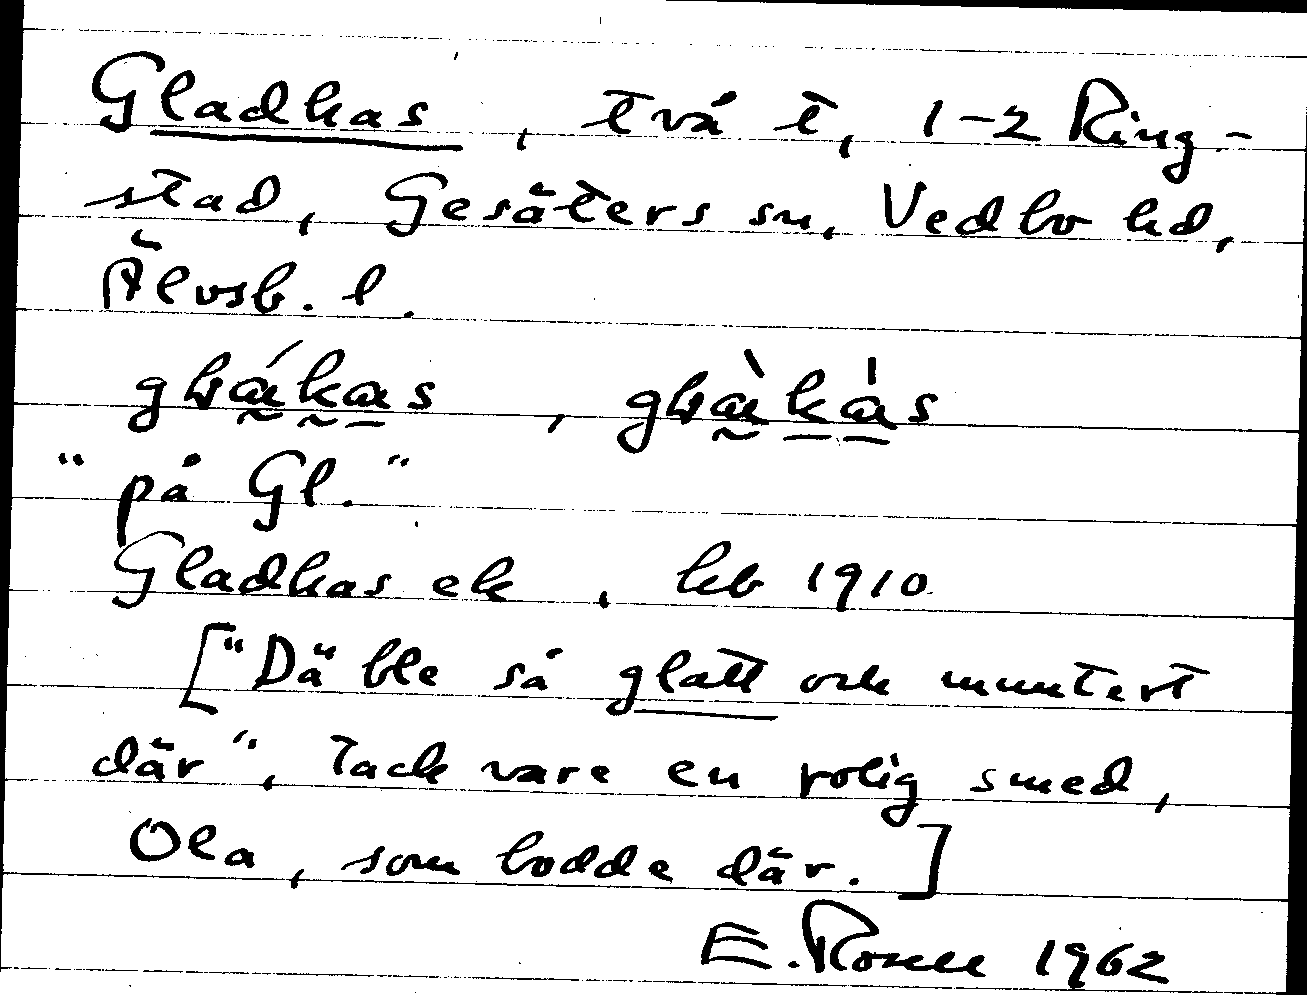 Gladkas, två t, 1-2 Ring-
stad, Gesäters sn, Vedbo hd,
Älvsb. l.
"på Gl."
Gladkas ek. kb 1910
["Dä ble så glatt och muntert
där", tack vare en rolig smed,
Ola, som bodde där.]
E. Rosell 1962